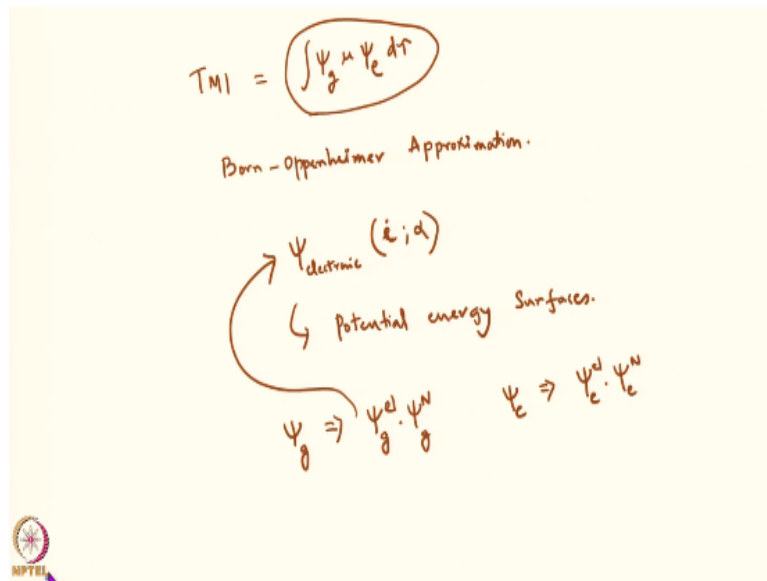 TMI = ∫ψ_g μ ψ_e dτ
Born-Oppenheimer Approximation.
ψ_electronic (i; α)
↳ Potential energy Surfaces.
ψ_g ⇒ ψ_g^el . ψ_g^N ψ_e ⇒ ψ_e^el . ψ_e^N
NPTEL